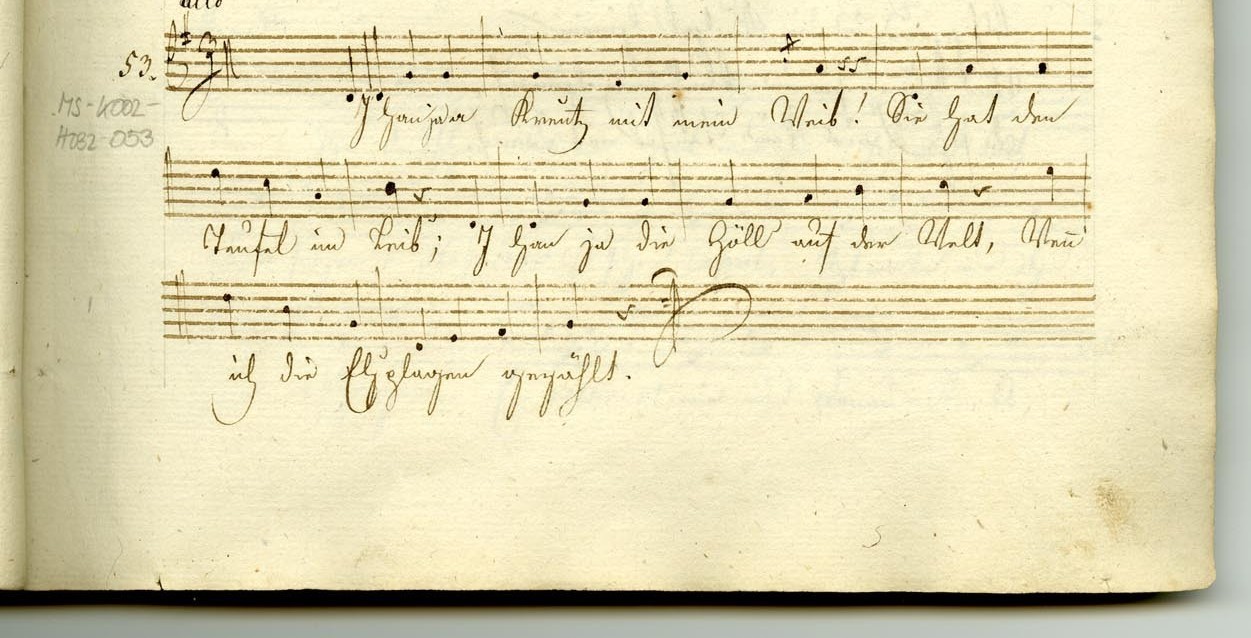 allo
53.
MS-K002-
H032-053
I han ja a Kreutz mit mein Weib! Sie hat den
Teufel im Leib; I han ja die Höll auf der Welt, Wenn
ich die Ehplagen gezählt.